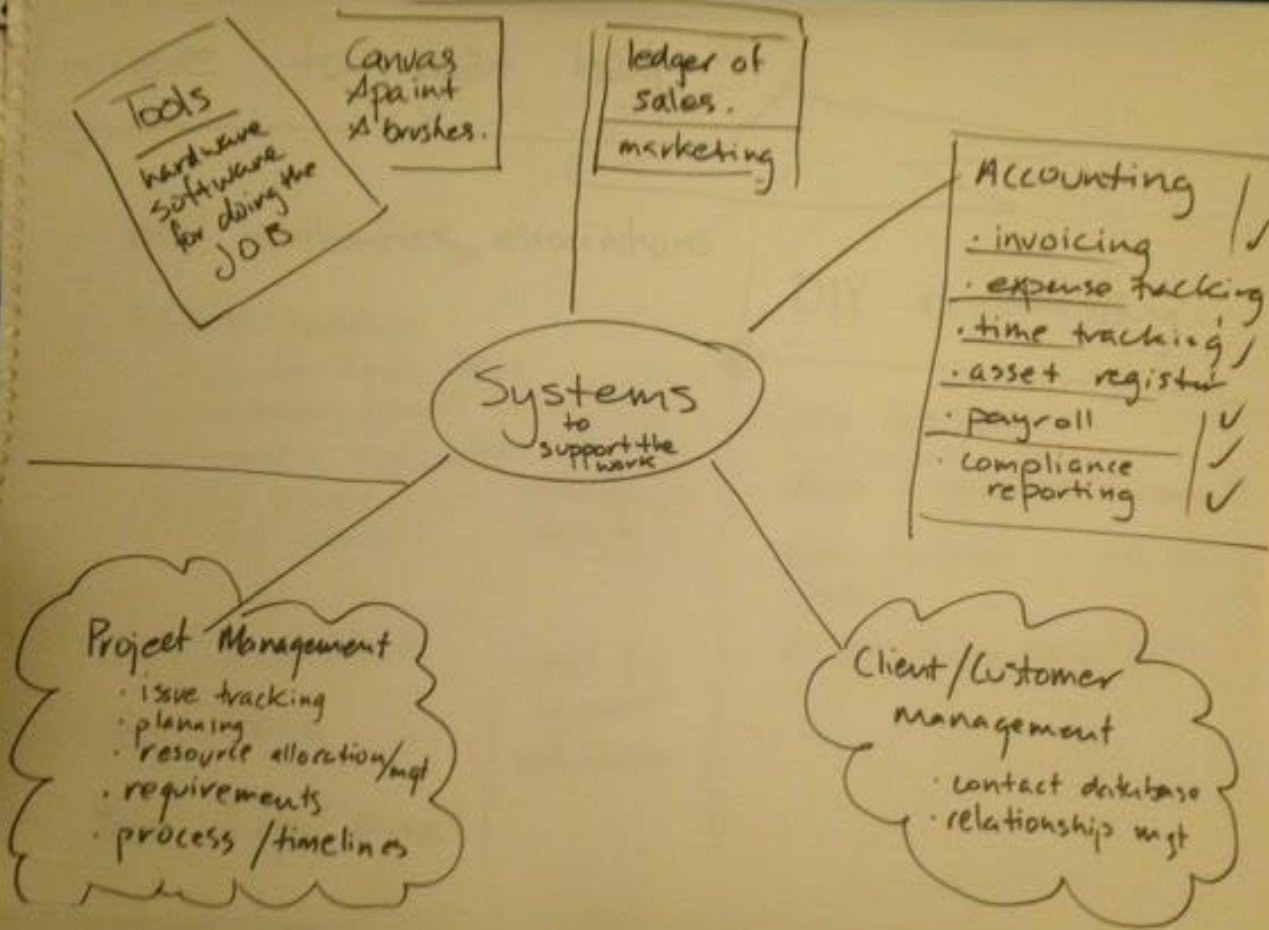 Tools
hardware
software
for doing the
JOB
Canvas
paint
brushes.
ledger of
sales.
marketing
Accounting
· invoicing
· expense tracking
· time tracking
· asset register
· payroll
· compliance
reporting
Systems
to
support the
work
Project Management
· issue tracking
· planning
· resource allocation/mgt
· requirements
· process / timelines
Client/Customer
management
· contact database
· relationship mgt